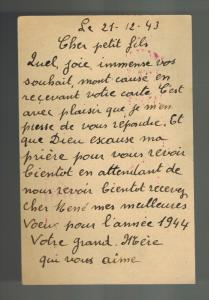 Le 21-12-43
Cher petit fils
Quel, joie immense vos
souhait, mont causé en
reçevant votre carte. C'est
avec plaisir que je m'en
presse de vous répondre. Et
que Dieu exause ma
prière pour vous revoir
bientot en attendant de
nous revoir bientot recevez
cher René mes meilleures
Voeux pour l'année 1944
Votre grand. Mère
qui vous aime